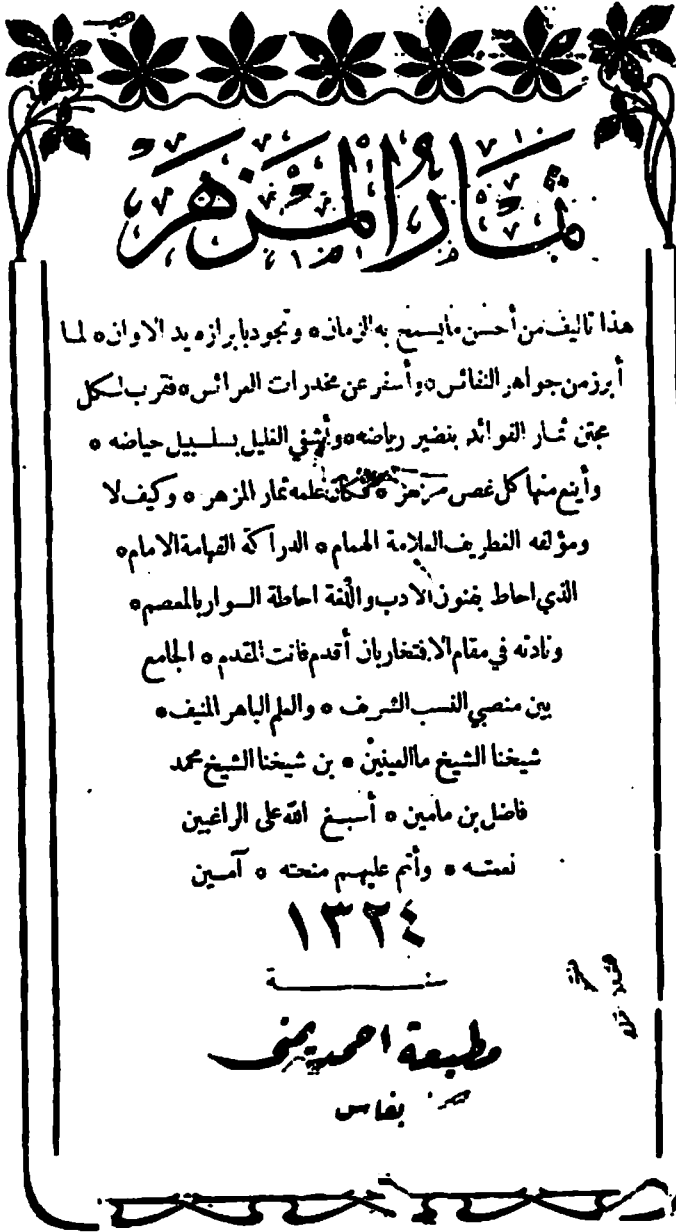 ثِمَارُ المَزْهَر
هذا تاليف من أحسن ما يسمح به الزمان ٭ وتجود بابرازه يد الاوان ٭ لما
أبرز من جواهر النفائس ٭ وأسفر عن مخدرات العرائس ٭ فقرب لكل
مجتن ثمار الفوائد بنضير رياضه ٭ وأشفي الغليل بسلسبيل حياضه ٭
وأينع منها كل غصن مزهر ٭ فكأن علمه ثمار المزهر ٭ وكيف لا
ومؤلفه الغطريف العلامة الهمام ٭ الدراكة الفهامة الامام ٭
الذي احاط بفنون الادب واللغة احاطة السوار بالمعصم ٭
ونادته في مقام الافتخار بان أقدم فانت المقدم ٭ الجامع
بين منصبي النسب الشريف ٭ والعلم الباهر المنيف ٭
شيخنا الشيخ ماالعينين ٭ بن شيخنا الشيخ محمد
فاضل بن مامين ٭ أسبغ الله على الراغبين
نعمته ٭ وأتم عليهم منحته ٭ آمين
١٣٢٤
سنة
مطبعة احمد يمنى
بفاس